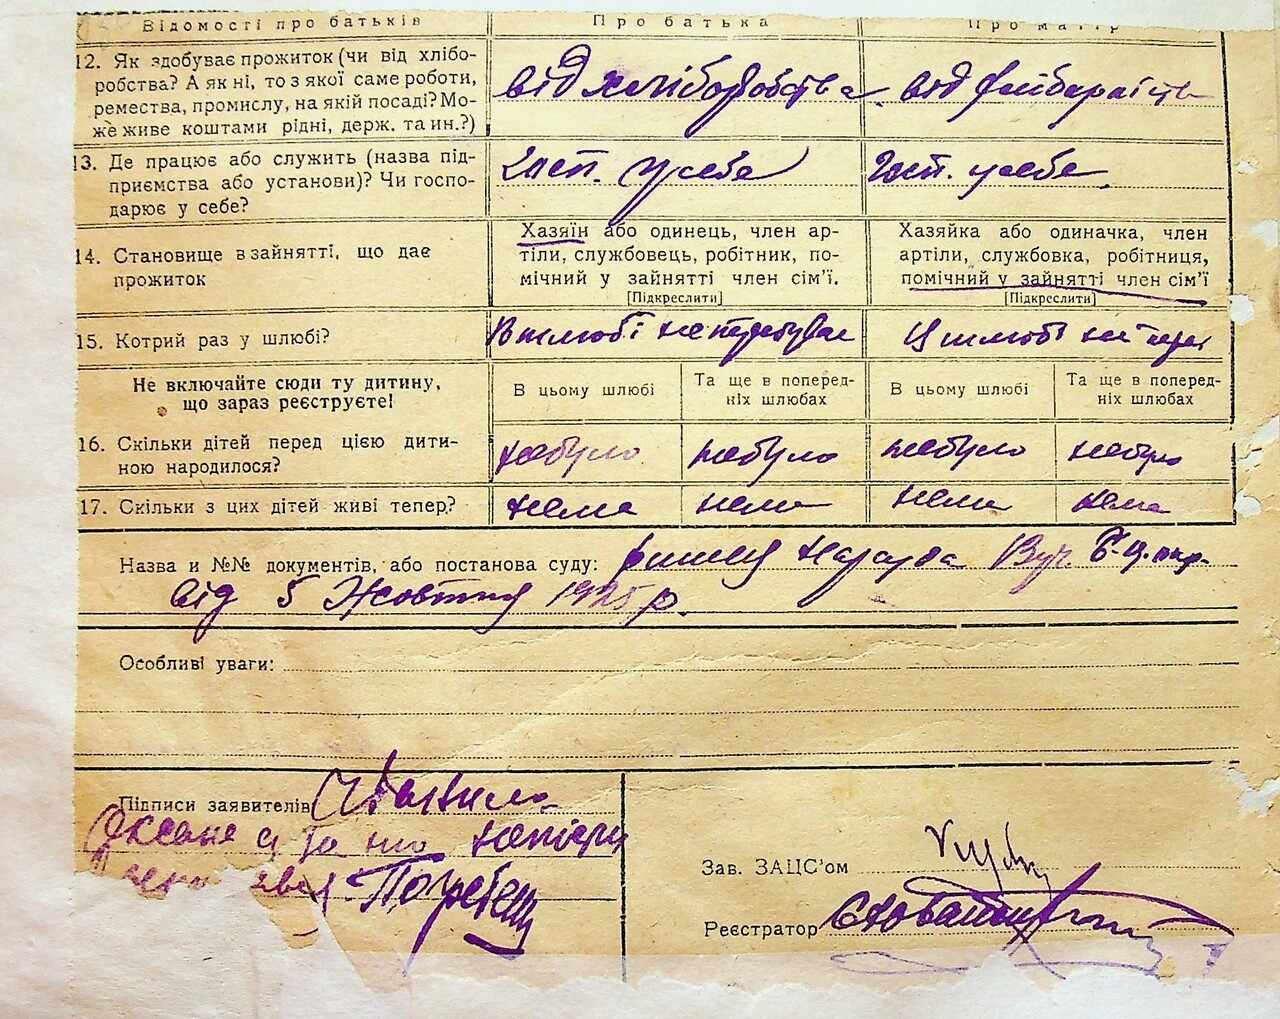 Відомості про батьків Про батька Про матір
12. Як здобуває прожиток (чи від хлібо-
робства? А як ні, то з якої саме роботи,
ремества, промислу, на якій посаді? Мо-
же живе коштами рідні, держ. та ин.?)
від хліборобства від
13. Де працює або служить (назва під-
приємства або установи)? Чи госпо-
дарює у себе?
госп. у себе госп. у себе
14. Становище в зайнятті, що дає
прожиток
Хазяїн або одинець, член ар-
тіли, службовець, робітник, по-
мічний у зайнятті член сім'ї.
[Підкреслити]
Хазяйка або одиначка, член
артіли, службовка, робітниця,
помічний у зайнятті член сім'ї
[Підкреслити]
15. Котрий раз у шлюбі? В шлюбі не перебував У шлюбі не
Не включайте сюди ту дитину,
що зараз реєструєте!
В цьому шлюбі Та ще в поперед-
ніх шлюбах В цьому шлюбі Та ще в поперед-
ніх шлюбах
16. Скільки дітей перед цією дити-
ною народилося?
небуло небуло небуло небуло
17. Скільки з цих дітей живі тепер? нема нема нема нема
Назва и №№ документів, або постанова суду:
від 5 Жовтня 1925 р.
Особливі уваги:
Підписи заявителів
Оксана
Зав. ЗАЦС'ом
Реєстратор